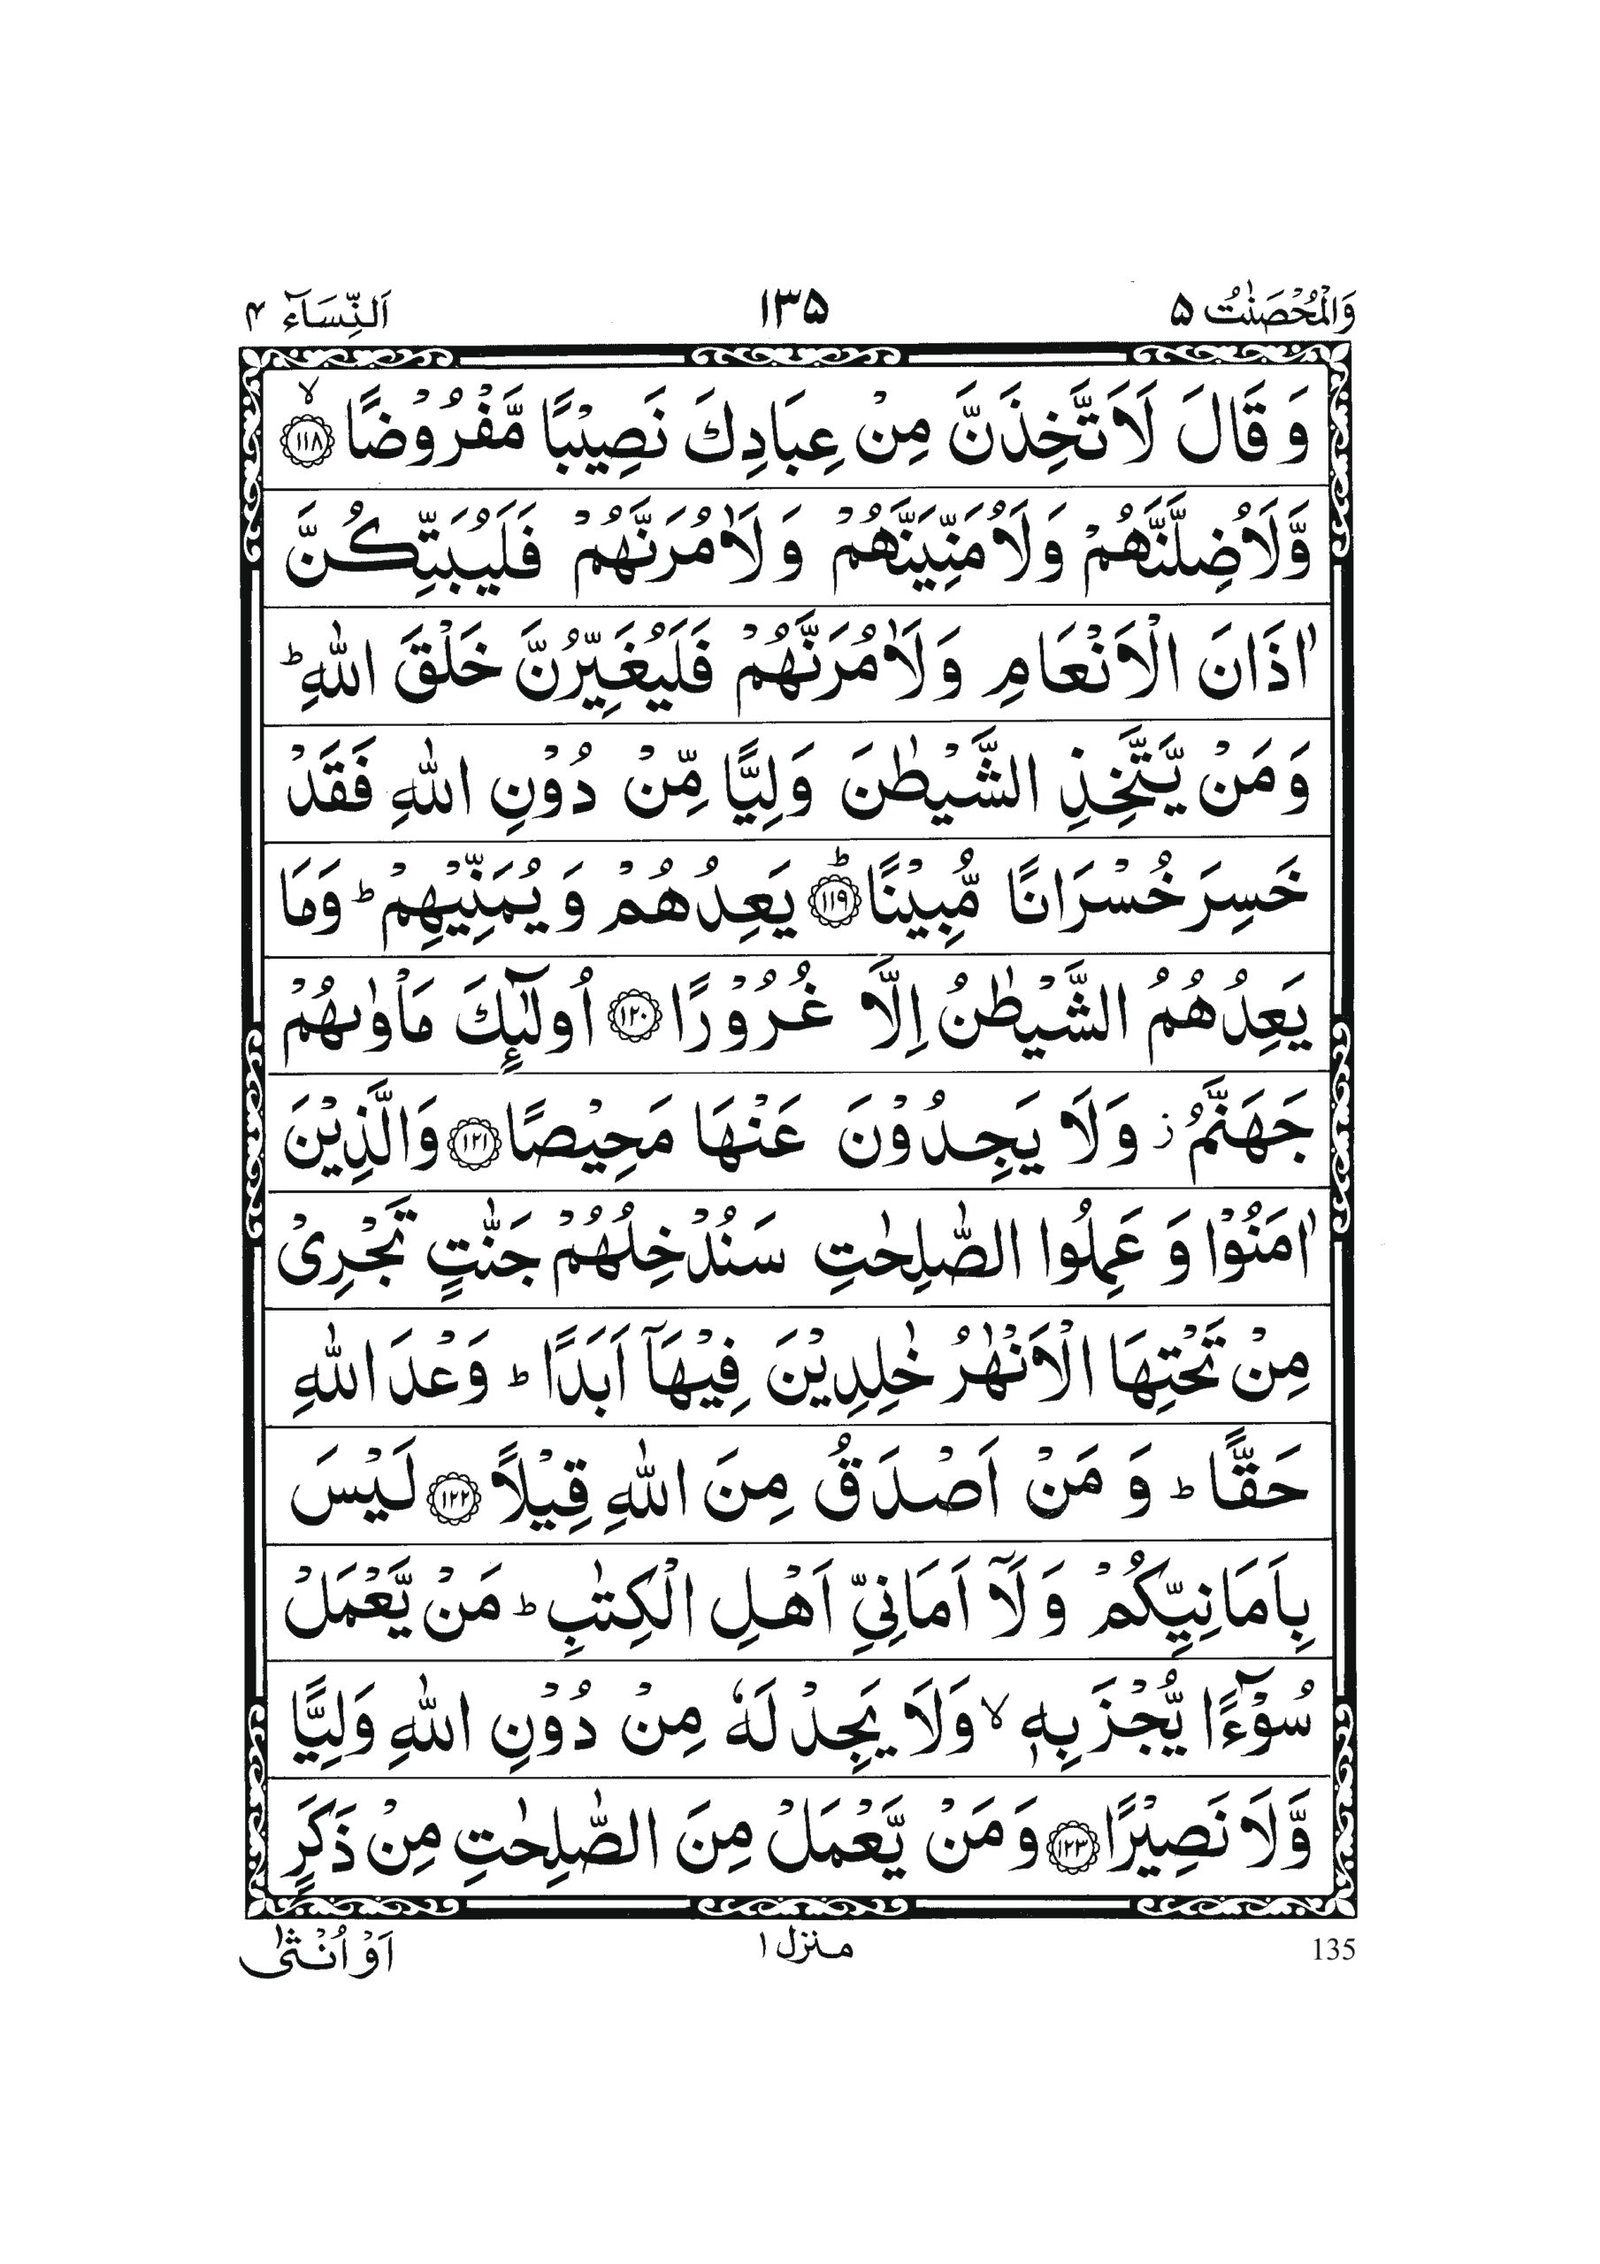 وَالْمُحْصَنٰتُ ۵ ۱۳۵ اَلنِّسَآء ۴
وَ قَالَ لَاَتَّخِذَنَّ مِنْ عِبَادِكَ نَصِيْبًا مَّفْرُوْضًا ۙ‏﴿۱۱۸﴾
وَّلَاُضِلَّنَّهُمْ وَلَاُمَنِّيَنَّهُمْ وَلَاٰمُرَنَّهُمْ فَلَيُبَتِّكُنَّ
اٰذَانَ الْاَنْعَامِ وَلَاٰمُرَنَّهُمْ فَلَيُغَيِّرُنَّ خَلْقَ اللّٰهِ ؕ
وَمَنْ يَّتَّخِذِ الشَّيْطٰنَ وَلِيًّا مِّنْ دُوْنِ اللّٰهِ فَقَدْ
خَسِرَ خُسْرَانًا مُّبِيْنًا ؕ﴿۱۱۹﴾ يَعِدُهُمْ وَيُمَنِّيْهِمْ ؕ وَمَا
يَعِدُهُمُ الشَّيْطٰنُ اِلَّا غُرُوْرًا ﴿۱۲۰﴾ اُولٰٓئِكَ مَاْوٰىهُمْ
جَهَنَّمُ ز وَلَا يَجِدُوْنَ عَنْهَا مَحِيْصًا ﴿۱۲۱﴾ وَالَّذِيْنَ
اٰمَنُوْا وَ عَمِلُوا الصّٰلِحٰتِ سَنُدْخِلُهُمْ جَنّٰتٍ تَجْرِىْ
مِنْ تَحْتِهَا الْاَنْهٰرُ خٰلِدِيْنَ فِيْهَآ اَبَدًا ؕ وَعْدَ اللّٰهِ
حَقًّا ؕ وَ مَنْ اَصْدَقُ مِنَ اللّٰهِ قِيْلًا ﴿۱۲۲﴾ لَيْسَ
بِاَمَانِيِّكُمْ وَ لَآ اَمَانِىِّ اَهْلِ الْكِتٰبِ ؕ مَنْ يَّعْمَلْ
سُوْٓءًا يُّجْزَ بِهٖ ۙ وَلَا يَجِدْ لَهٗ مِنْ دُوْنِ اللّٰهِ وَلِيًّا
وَّلَا نَصِيْرًا ﴿۱۲۳﴾ وَمَنْ يَّعْمَلْ مِنَ الصّٰلِحٰتِ مِنْ ذَكَرٍ
135 منزل ۱ اَوْ اُنْثٰى